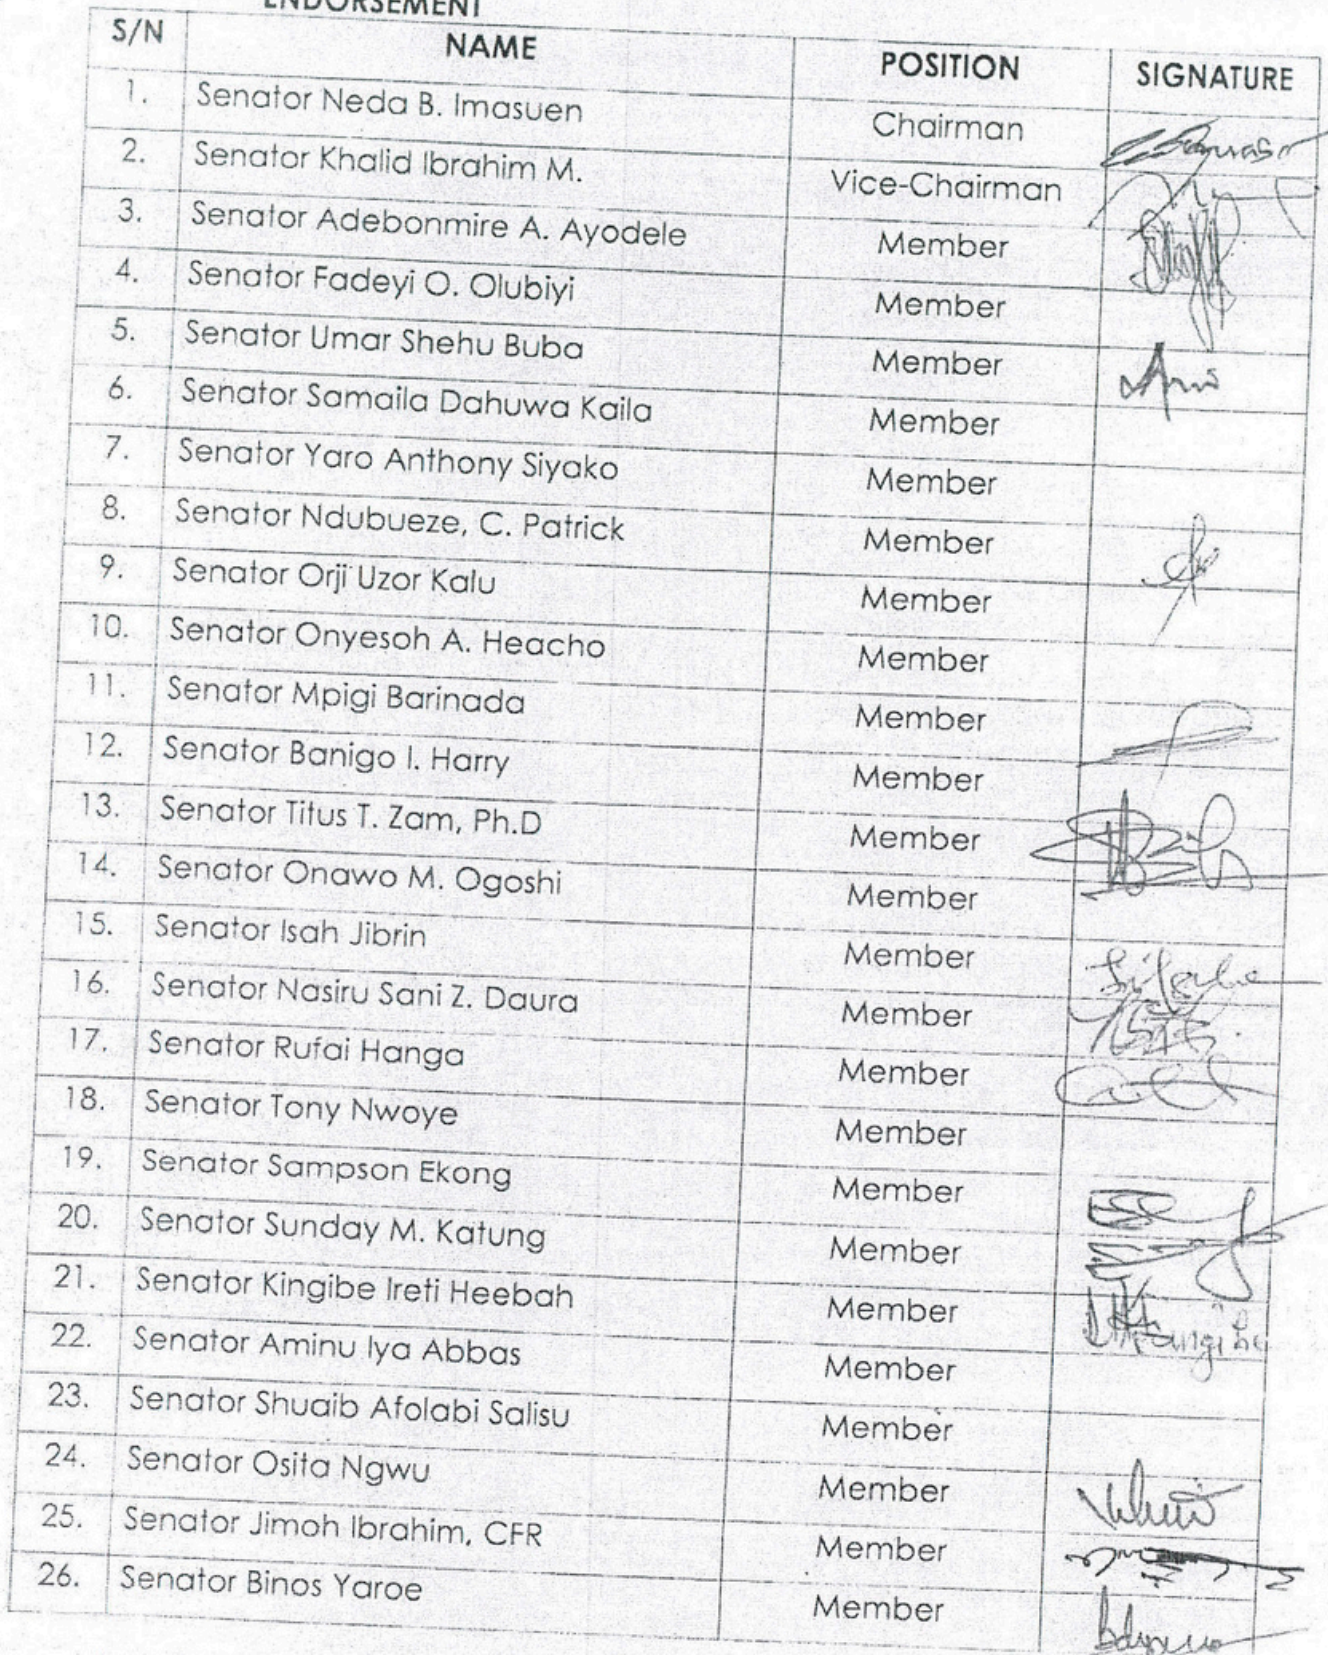 ENDORSEMENT
S/N NAME POSITION SIGNATURE
1. Senator Neda B. Imasuen Chairman
2. Senator Khalid Ibrahim M. Vice-Chairman
3. Senator Adebonmire A. Ayodele Member
4. Senator Fadeyi O. Olubiyi Member
5. Senator Umar Shehu Buba Member
6. Senator Samaila Dahuwa Kaila Member
7. Senator Yaro Anthony Siyako Member
8. Senator Ndubueze, C. Patrick Member
9. Senator Orji Uzor Kalu Member
10. Senator Onyesoh A. Heacho Member
11. Senator Mpigi Barinada Member
12. Senator Banigo I. Harry Member
13. Senator Titus T. Zam, Ph.D Member
14. Senator Onawo M. Ogoshi Member
15. Senator Isah Jibrin Member
16. Senator Nasiru Sani Z. Daura Member
17. Senator Rufai Hanga Member
18. Senator Tony Nwoye Member
19. Senator Sampson Ekong Member
20. Senator Sunday M. Katung Member
21. Senator Kingibe Ireti Heebah Member
22. Senator Aminu Iya Abbas Member
23. Senator Shuaib Afolabi Salisu Member
24. Senator Osita Ngwu Member
25. Senator Jimoh Ibrahim, CFR Member
26. Senator Binos Yaroe Member